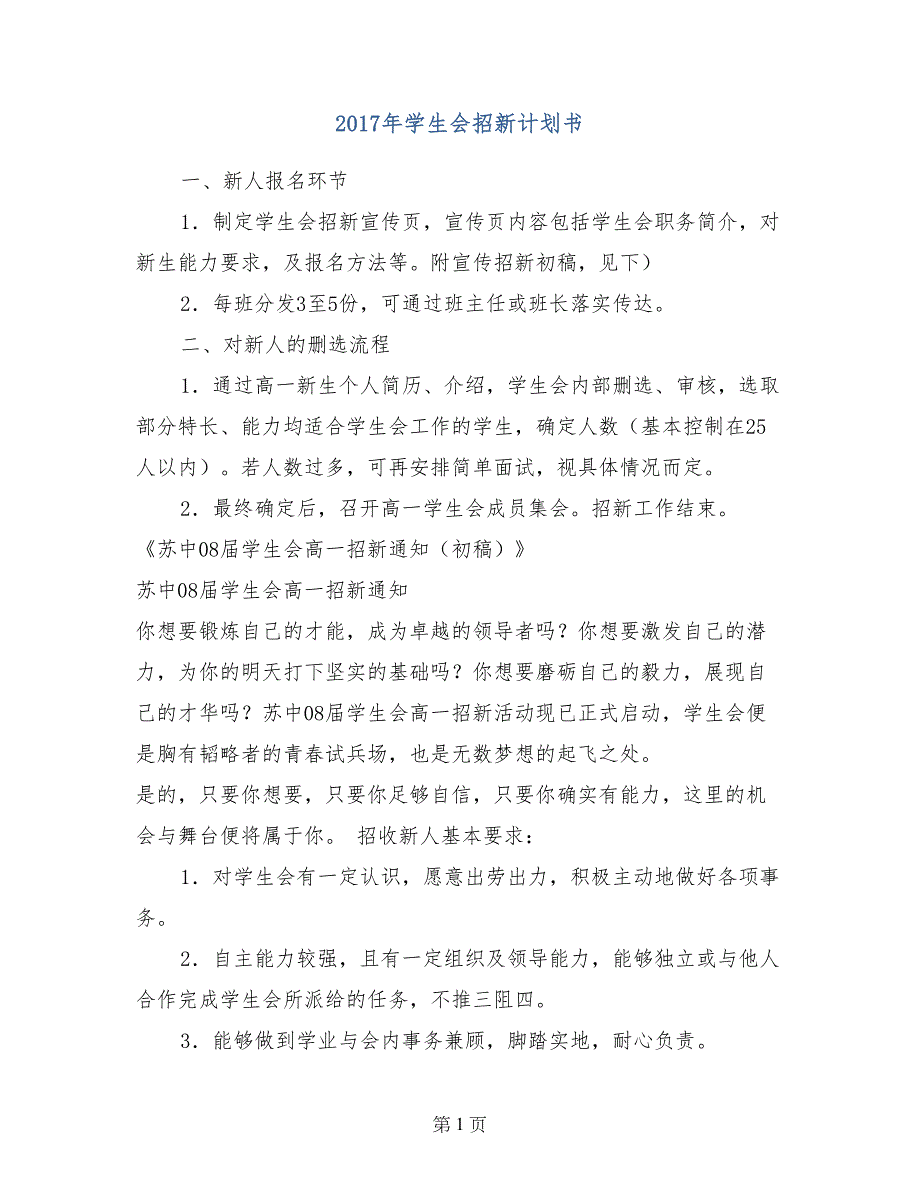 2017年学生会招新计划书
一、新人报名环节
1．制定学生会招新宣传页，宣传页内容包括学生会职务简介，对
新生能力要求，及报名方法等。附宣传招新初稿，见下）
2．每班分发3至5份，可通过班主任或班长落实传达。
二、对新人的删选流程
1．通过高一新生个人简历、介绍，学生会内部删选、审核，选取
部分特长、能力均适合学生会工作的学生，确定人数（基本控制在25
人以内）。若人数过多，可再安排简单面试，视具体情况而定。
2．最终确定后，召开高一学生会成员集会。招新工作结束。
《苏中08届学生会高一招新通知（初稿）》
苏中08届学生会高一招新通知
你想要锻炼自己的才能，成为卓越的领导者吗？你想要激发自己的潜
力，为你的明天打下坚实的基础吗？你想要磨砺自己的毅力，展现自
己的才华吗？苏中08届学生会高一招新活动现已正式启动，学生会便
是胸有韬略者的青春试兵场，也是无数梦想的起飞之处。
是的，只要你想要，只要你足够自信，只要你确实有能力，这里的机
会与舞台便将属于你。 招收新人基本要求：
1．对学生会有一定认识，愿意出劳出力，积极主动地做好各项事
务。
2．自主能力较强，且有一定组织及领导能力，能够独立或与他人
合作完成学生会所派给的任务，不推三阻四。
3．能够做到学业与会内事务兼顾，脚踏实地，耐心负责。
第 1 页